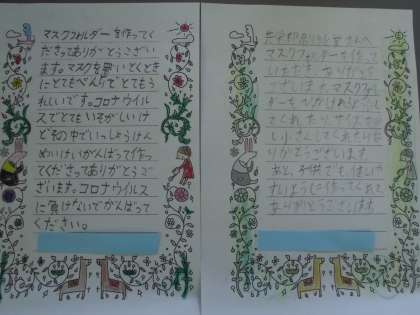 マスクフォルダーを作ってく
ださってありがとうござい
ます。マスクを置いてくとき
にとてもべんりでとてもう
れしいです。コロナウイル
スでとてもいそがしいけ
どその中でいっしょうけん
めいけいがんばって作っ
てくださってありがとうご
ざいます。コロナウイルス
に負けないでがんばって
ください。
マスクフォルダーを作って
いただき、ありがとうござ
いました。マスクフォル
ダーを
てくれたり、サイズを
小さくしてくれたり
りがとうございます。
あと、子供でも使いや
すいように作ってくれて
ありがとうございます。